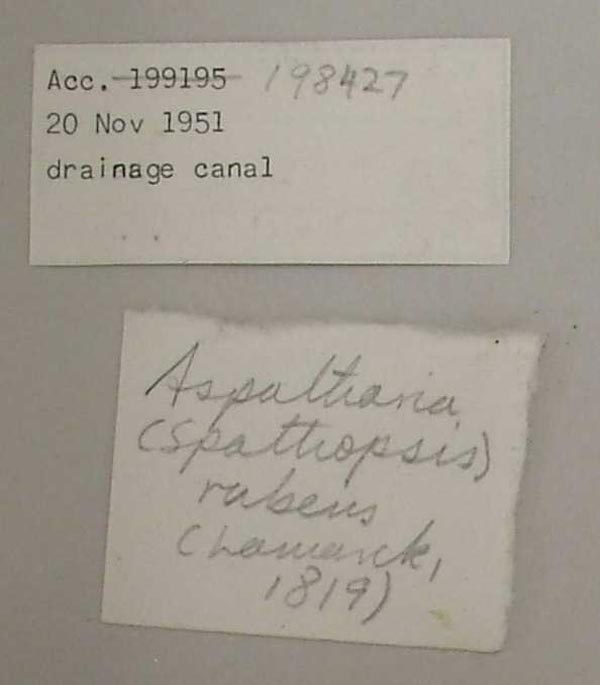 Acc. 199195 198427
20 Nov 1951
drainage canal
Aspatharia
(Spathopsis)
rubens
(Lamarck,
1819)